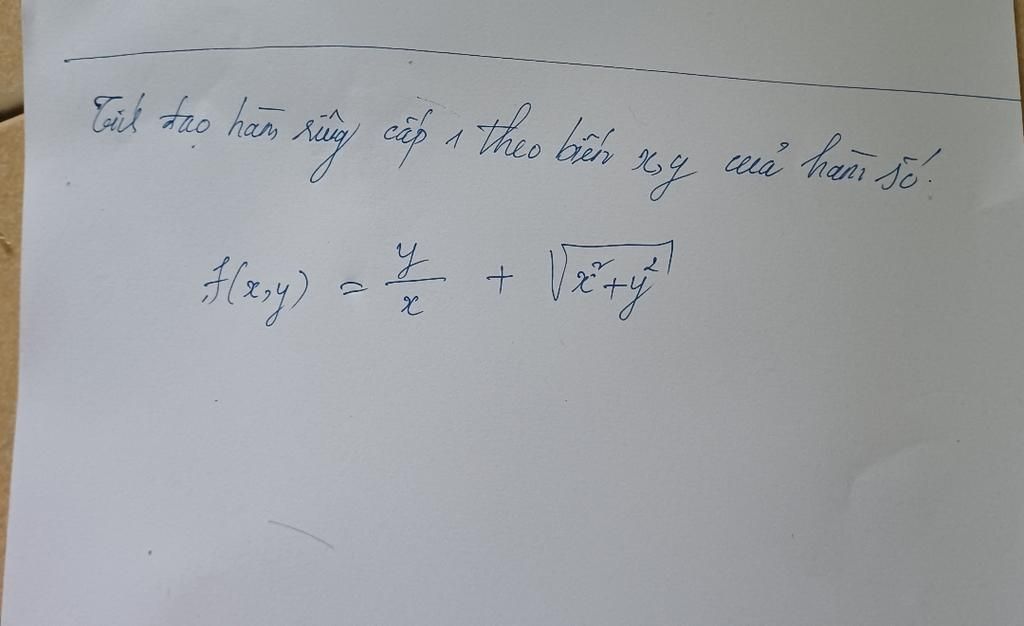 Tính đạo hàm riêng cấp 1 theo biến x, y của hàm số.
f(x,y) = y/x + √(x² + y²)